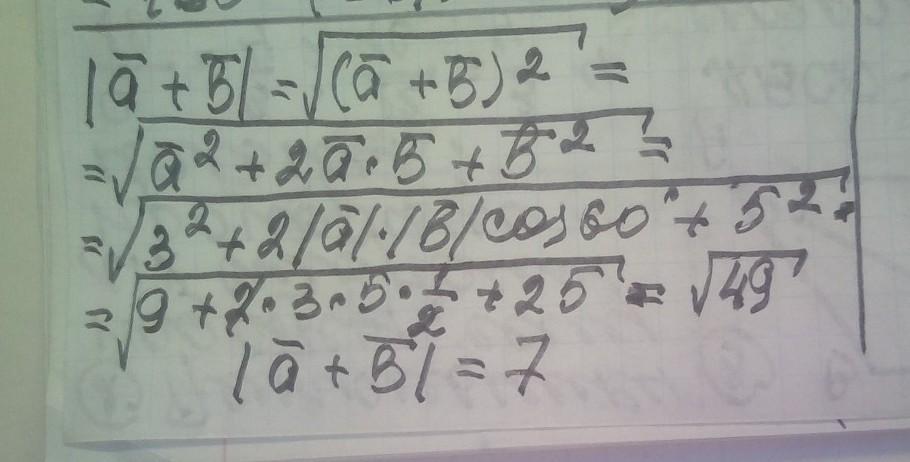 |a̅ + b̅| = √(a̅ + b̅)² =
= √a̅² + 2a̅·b̅ + b̅² =
= √3² + 2|a̅|·|b̅|cos60° + 5² =
= √9 + 2·3·5·1/2 + 25 = √49
|a̅ + b̅| = 7